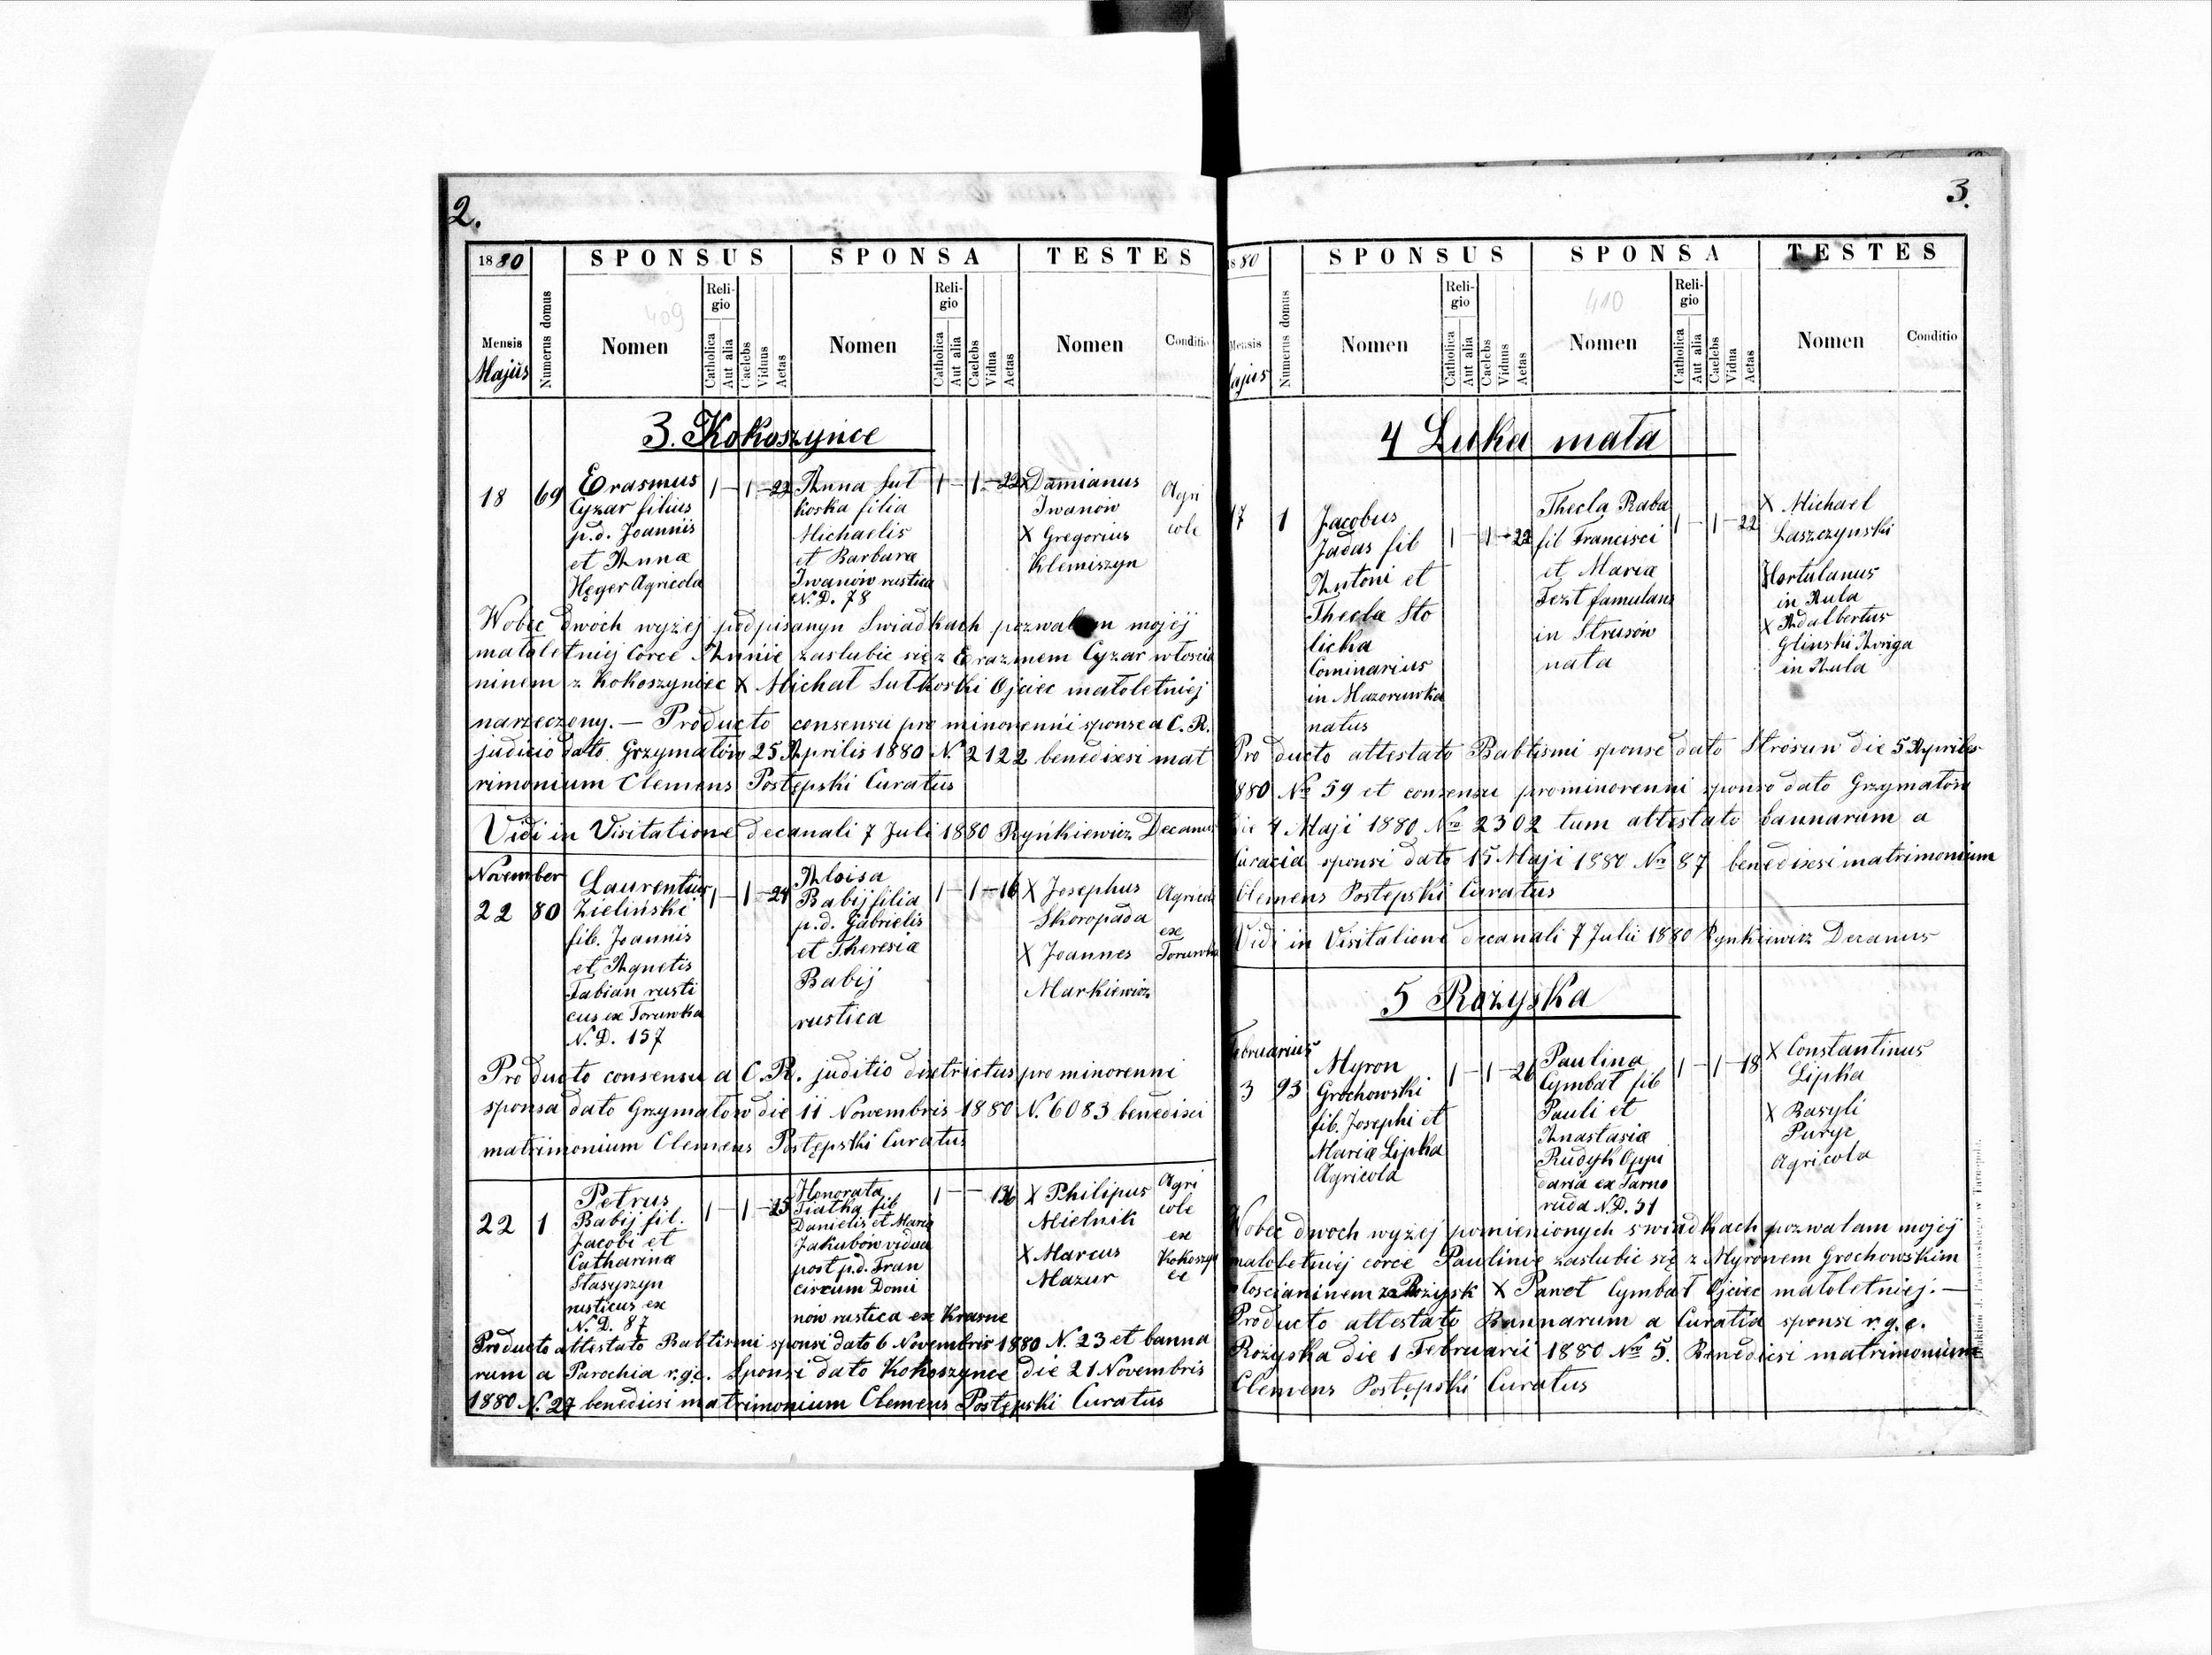 2.
1880
SPONSUS
SPONSA
TESTES
Mensis
Majus
Numerus domus
409
Nomen
Religio
Catholica
Aut alia
Caelebs
Viduus
Aetas
Nomen
Religio
Catholica
Aut alia
Caelebs
Vidua
Aetas
Nomen
Conditio
3. Kokoszynce
18
69
Erasmus
Cyzar filius
p.d. Joannis
et Anna
Hęger Agricola
1 — 1 — 22
Anna Sut
koska filia
Michaelis
et Barbara
Iwanów rustica
N. D. 78
1 — 1 — 22
X Damianus
Iwanów
X Gregorius
Klemiszyn
Agri
cole
Wobec dwóch wyżej podpisanyn Swiadkach pozwalam mojéj
małoletniéj Córce Annie zaslubic się z Erazmem Cyzar włoscia
ninem z Kokoszyniec X Michał Sutkoski Ojciec małoletniéj
narzeczony. — Producto consensu pro minorenni sponse a C. R.
judicio dato Grzymałów 25 Aprilis 1880 N. 2122 benedixi mat
rimonium Clemens Postępski Curatus
Vidi in Visitatione decanali 7 Juli 1880 Ryńkiewicz Decanus
November
22
80
Laurentius
Zieliński
fil. Joannis
et Agnetis
Fabian rusti
cus ex Toruwka
N. D. 157
1 — 1 — 24
Aloisa
Babij filia
p.d. Gabrielis
et Theresia
Babij
rustica
1 — 1 — 16
X Josephus
Skoropada
X Joannes
Markiewicz
Agricola
ex
Toruwka
Producto consensu a C. R. juditio districtus pro minorenni
sponsa dato Grzymałów die 11 Nowembris 1880 N. 6083 benedixi
matrimonium Clemens Postępski Curatus
22
1
Petrus
Babij fil.
Jacobi et
Catharina
Stasyszyn
rusticus ex
N. D. 87
1 — 1 — 25
Honorata
Fiałka fil
Danielis et Maria
Jakubów vidua
post p.d. Fran
ciscum Domi
nów rustica ex Krasne
1 — — 1 36
X Philipus
Mielnik
X Marcus
Mazur
Agri
cole
ex
Kokoszyn
ce
Producto attestato Babtismi sponsi dato 6 Novembris 1880 N. 23 et banna
rum a Parochia r.g.c. Sponsi dato Kokoszynce die 21 Novembris
1880 N. 27 benedixi matrimonium Clemens Postępski Curatus
3.
1880
SPONSUS
SPONSA
TESTES
Mensis
Majus
Numerus domus
Nomen
Religio
Catholica
Aut alia
Caelebs
Viduus
Aetas
410
Nomen
Religio
Catholica
Aut alia
Caelebs
Vidua
Aetas
Nomen
Conditio
4 Luka mała
17
1
Jacobus
Jadas fil
Antoni et
Thecla Sto
licka
Cominarius
in Mazoruwka
natus
1 — 1 — 22
Thecla Raba
fil Francisci
et Maria
Fezt famulans
in Strusów
nata
1 — 1 — 22
X Michael
Laszczynski
Hortulanus
in Aula
X Adalbertus
Glinski Auriga
in Aula
Producto attestato Babtismi sponse dato Strósuw die 5 Aprilis
1880 No 59 et consensu prominorenni sponso dato Grzymałów
die 4 Maji 1880 Nro 2302 tum attestato bannarum a
Curacia sponsi dato 15 Maji 1880 No 87 benedixi matrimonium
Clemens Postępski Curatus
Vidi in Visitatione decanali 7 Julii 1880 Rynkiewicz Decanus
5 Rożyska
Februarius
3
93
Myron
Grochowski
fil. Josephi et
Maria Lipka
Agricola
1 — 1 — 26
Paulina
Cymbał fil
Pauli et
Anastasia
Rudyk Oppi
daria ex Tarno
ruda N. D. 31
1 — 1 — 18
X Constantinus
Lipka
X Basyli
Puryc
Agricola
Wobec dwoch wyzéj pomienionych swiadkach pozwalam mojéj
małoletniéj córce Paulinie zaslubic się z Myronem Grochowskim
włoscianinem z Rożysk X Paweł Cymbał Ojciec małoletniéj. —
Producto attestato Bannarum a Curatia sponsi r.g.c.
Rożyska die 1 Februarii 1880 No 5. Benedixi matrimonium
Clemens Postępski Curatus